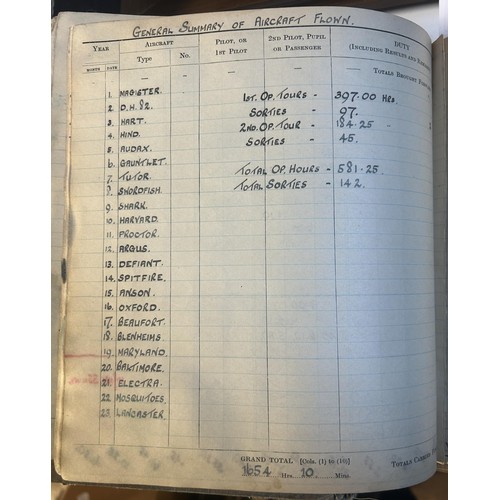 GENERAL SUMMARY OF AIRCRAFT FLOWN.
YEAR
AIRCRAFT
PILOT, OR 1ST PILOT
2ND PILOT, PUPIL OR PASSENGER
DUTY
(INCLUDING RESULTS AND
MONTH DATE Type No.
— — — — —
TOTALS BROUGHT
1. MAGISTER.
2 D.H. 82. 1ST. OP. TOURS - 397.00 HRS.
3. HART. SORTIES - 97.
4. HIND. 2ND. OP. TOUR - 184.25 -
5. AUDAX. SORTIES - 45.
6. GAUNTLET.
7. TUTOR. TOTAL OP. HOURS - 581.25
8. SWORDFISH. TOTAL SORTIES - 142.
9. SHARK.
10. HARVARD.
11. PROCTOR.
12. ARGUS.
13. DEFIANT.
14. SPITFIRE.
15. ANSON.
16. OXFORD.
17. BEAUFORT.
18. BLENHEIMS.
19. MARYLAND.
20. BALTIMORE.
21. ELECTRA.
22 MOSQUITOES.
23. LANCASTER.
GRAND TOTAL [Cols. (1) to (10)]
1654 Hrs. 10 Mins.
TOTALS CARRIED